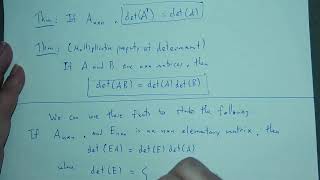 Thm: If Anxn, det(Aᵀ) = det(A)
Thm: (Multiplicative property of determinant)
If A and B are nxn matrices, then
det(AB) = det(A) det(B)
We can use these facts to state the following
If Anxn, and Enxn is an nxn elementary matrix, then
det(EA) = det(E) det(A)
where det(E) = {